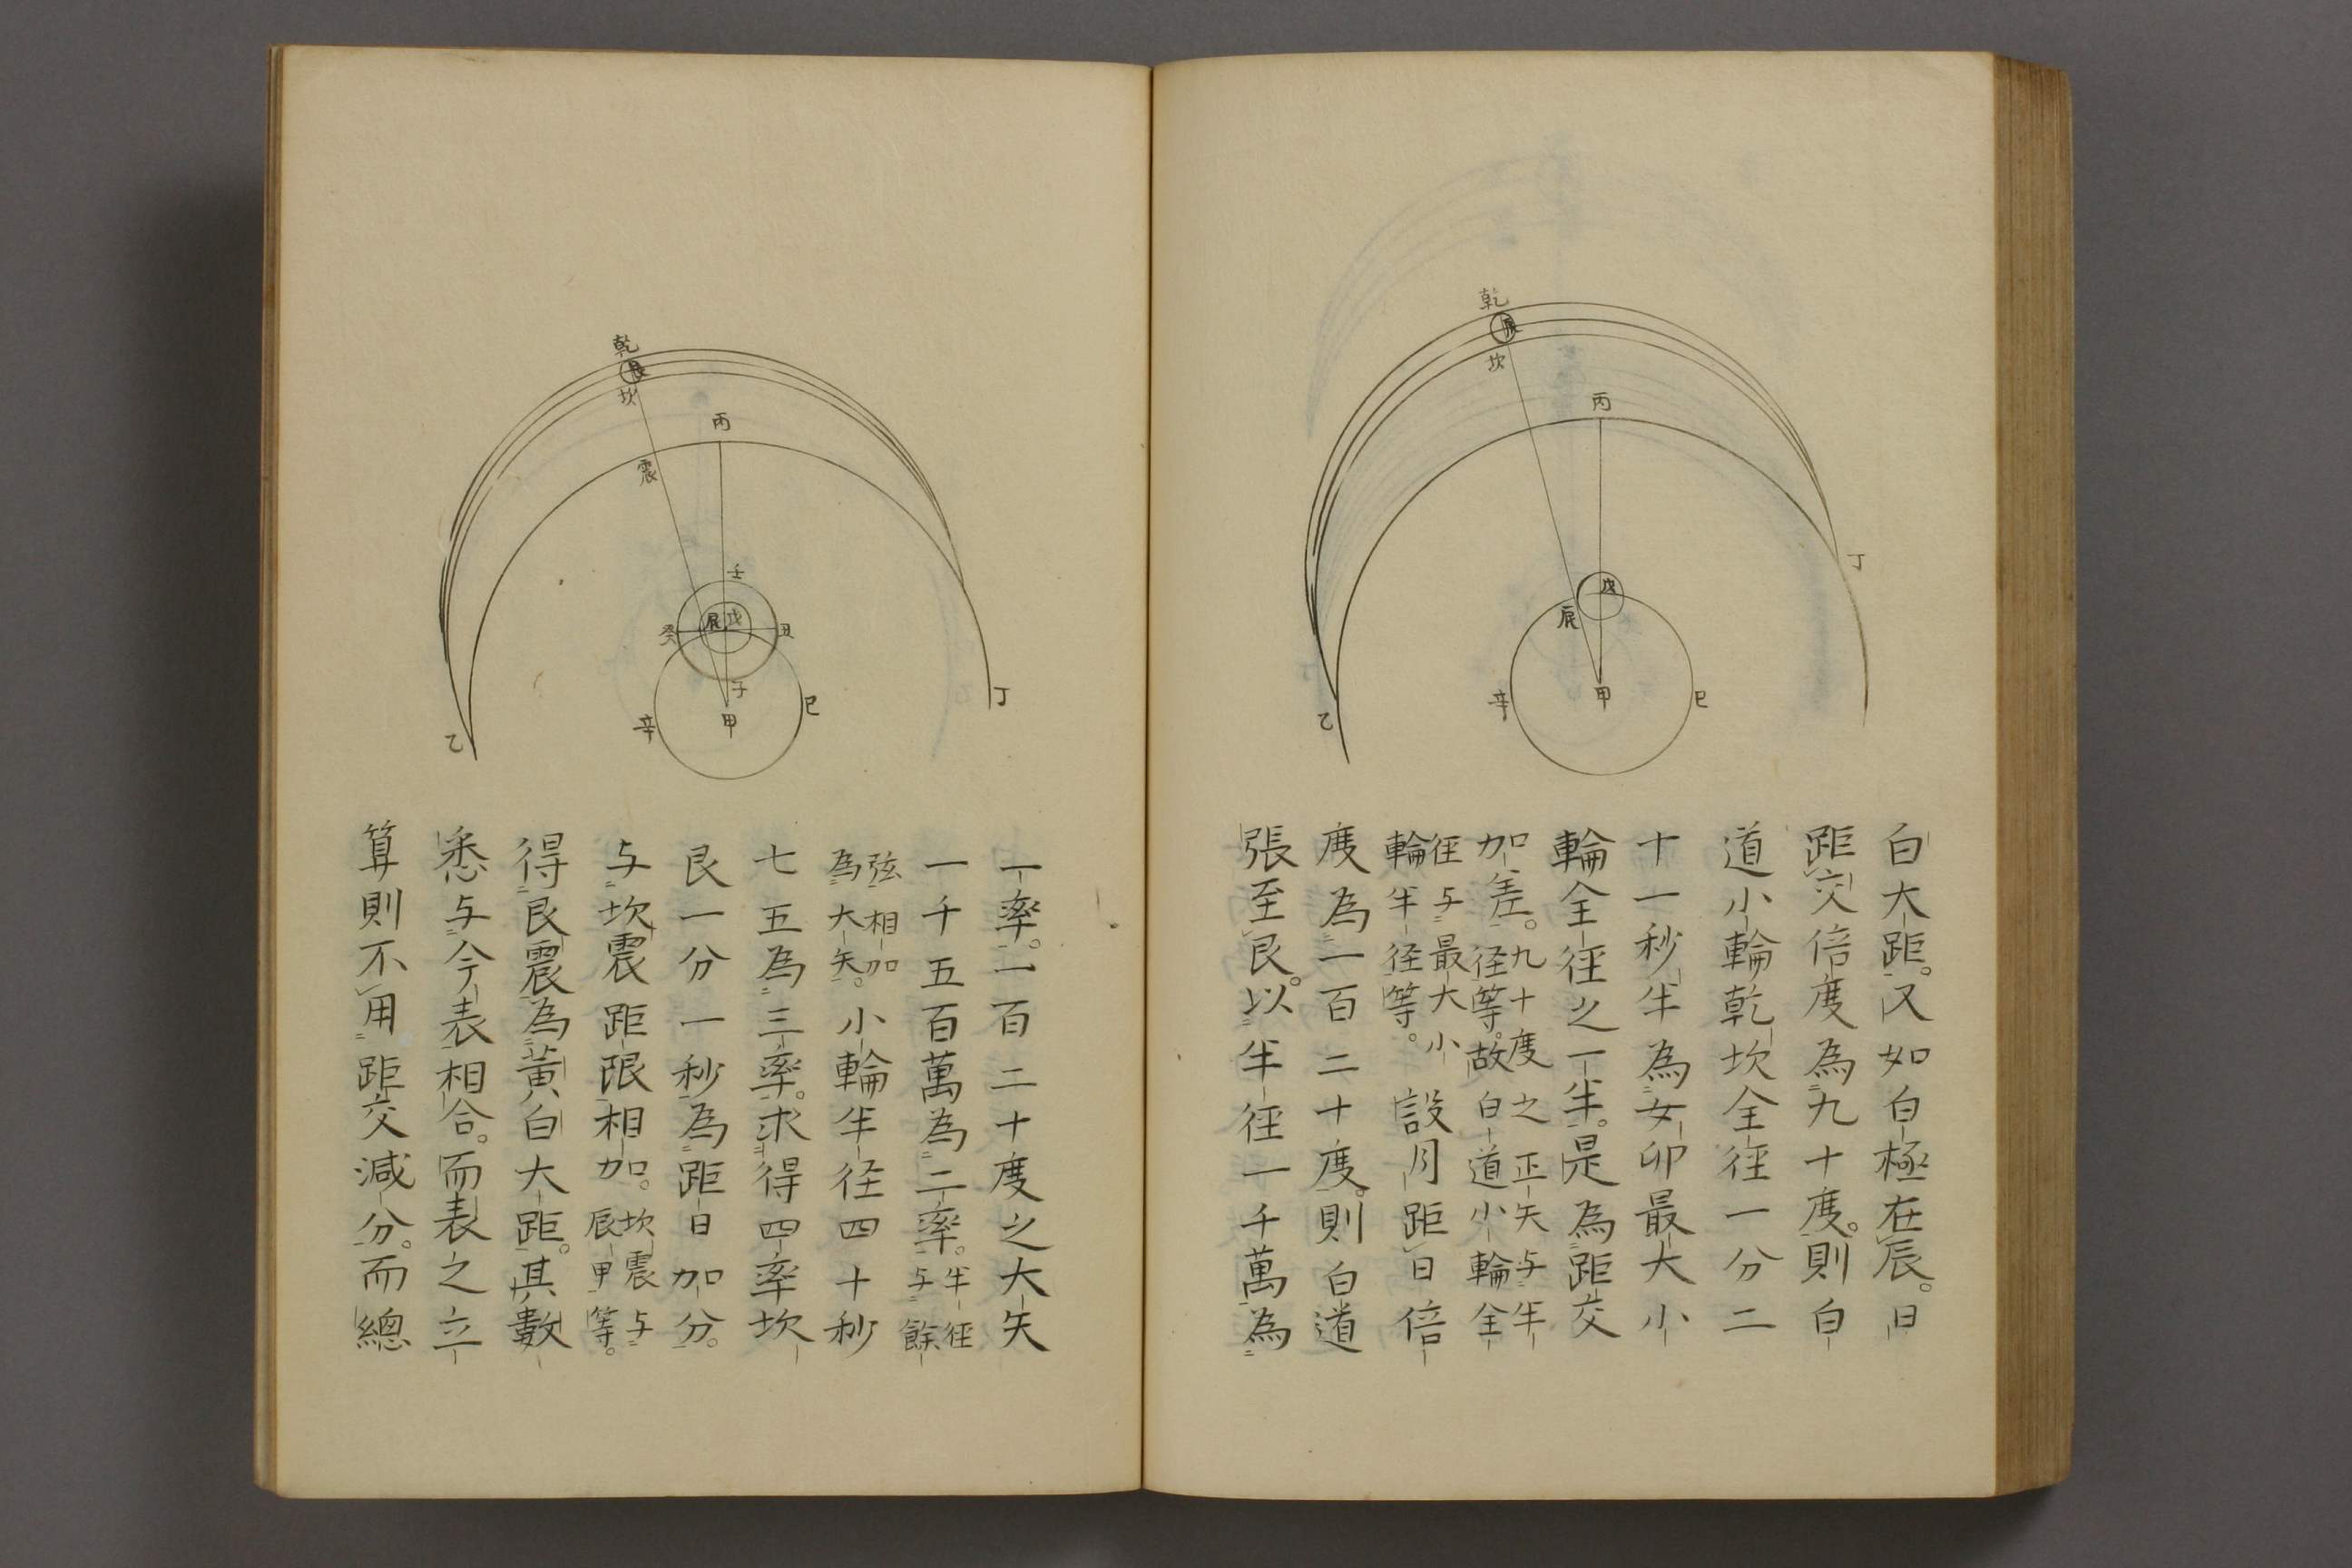 乾
坎
丙
丁
戊
辰
甲
辛
巳
乙
白大距。又如白極在辰。日
距交倍度為九十度。則白
道小輪乾坎全徑一分二
十一秒半為女卯最大小
輪全徑之一半。是為距交
加差。九十度之正矢与半
径等。故白道小輪全
径与最大小
輪半径等。設月距日倍
度為一百二十度。則白道
張至艮。以半径一千萬為
乾
艮
坎
丙
震
壬
癸
辰
戊
丑
子
甲
辛
巳
丁
乙
一率。一百二十度之大矢
一千五百萬為二率。半径
与餘
弦相加
為大矢。小輪半径四十秒
七五為三率。求得四率坎
艮一分一秒為距日加分。
与坎震距限相加。坎震与
辰甲等。
得艮震為黃白大距。其數
悉与今表相合。而表之立
算則不用距交減分。而總